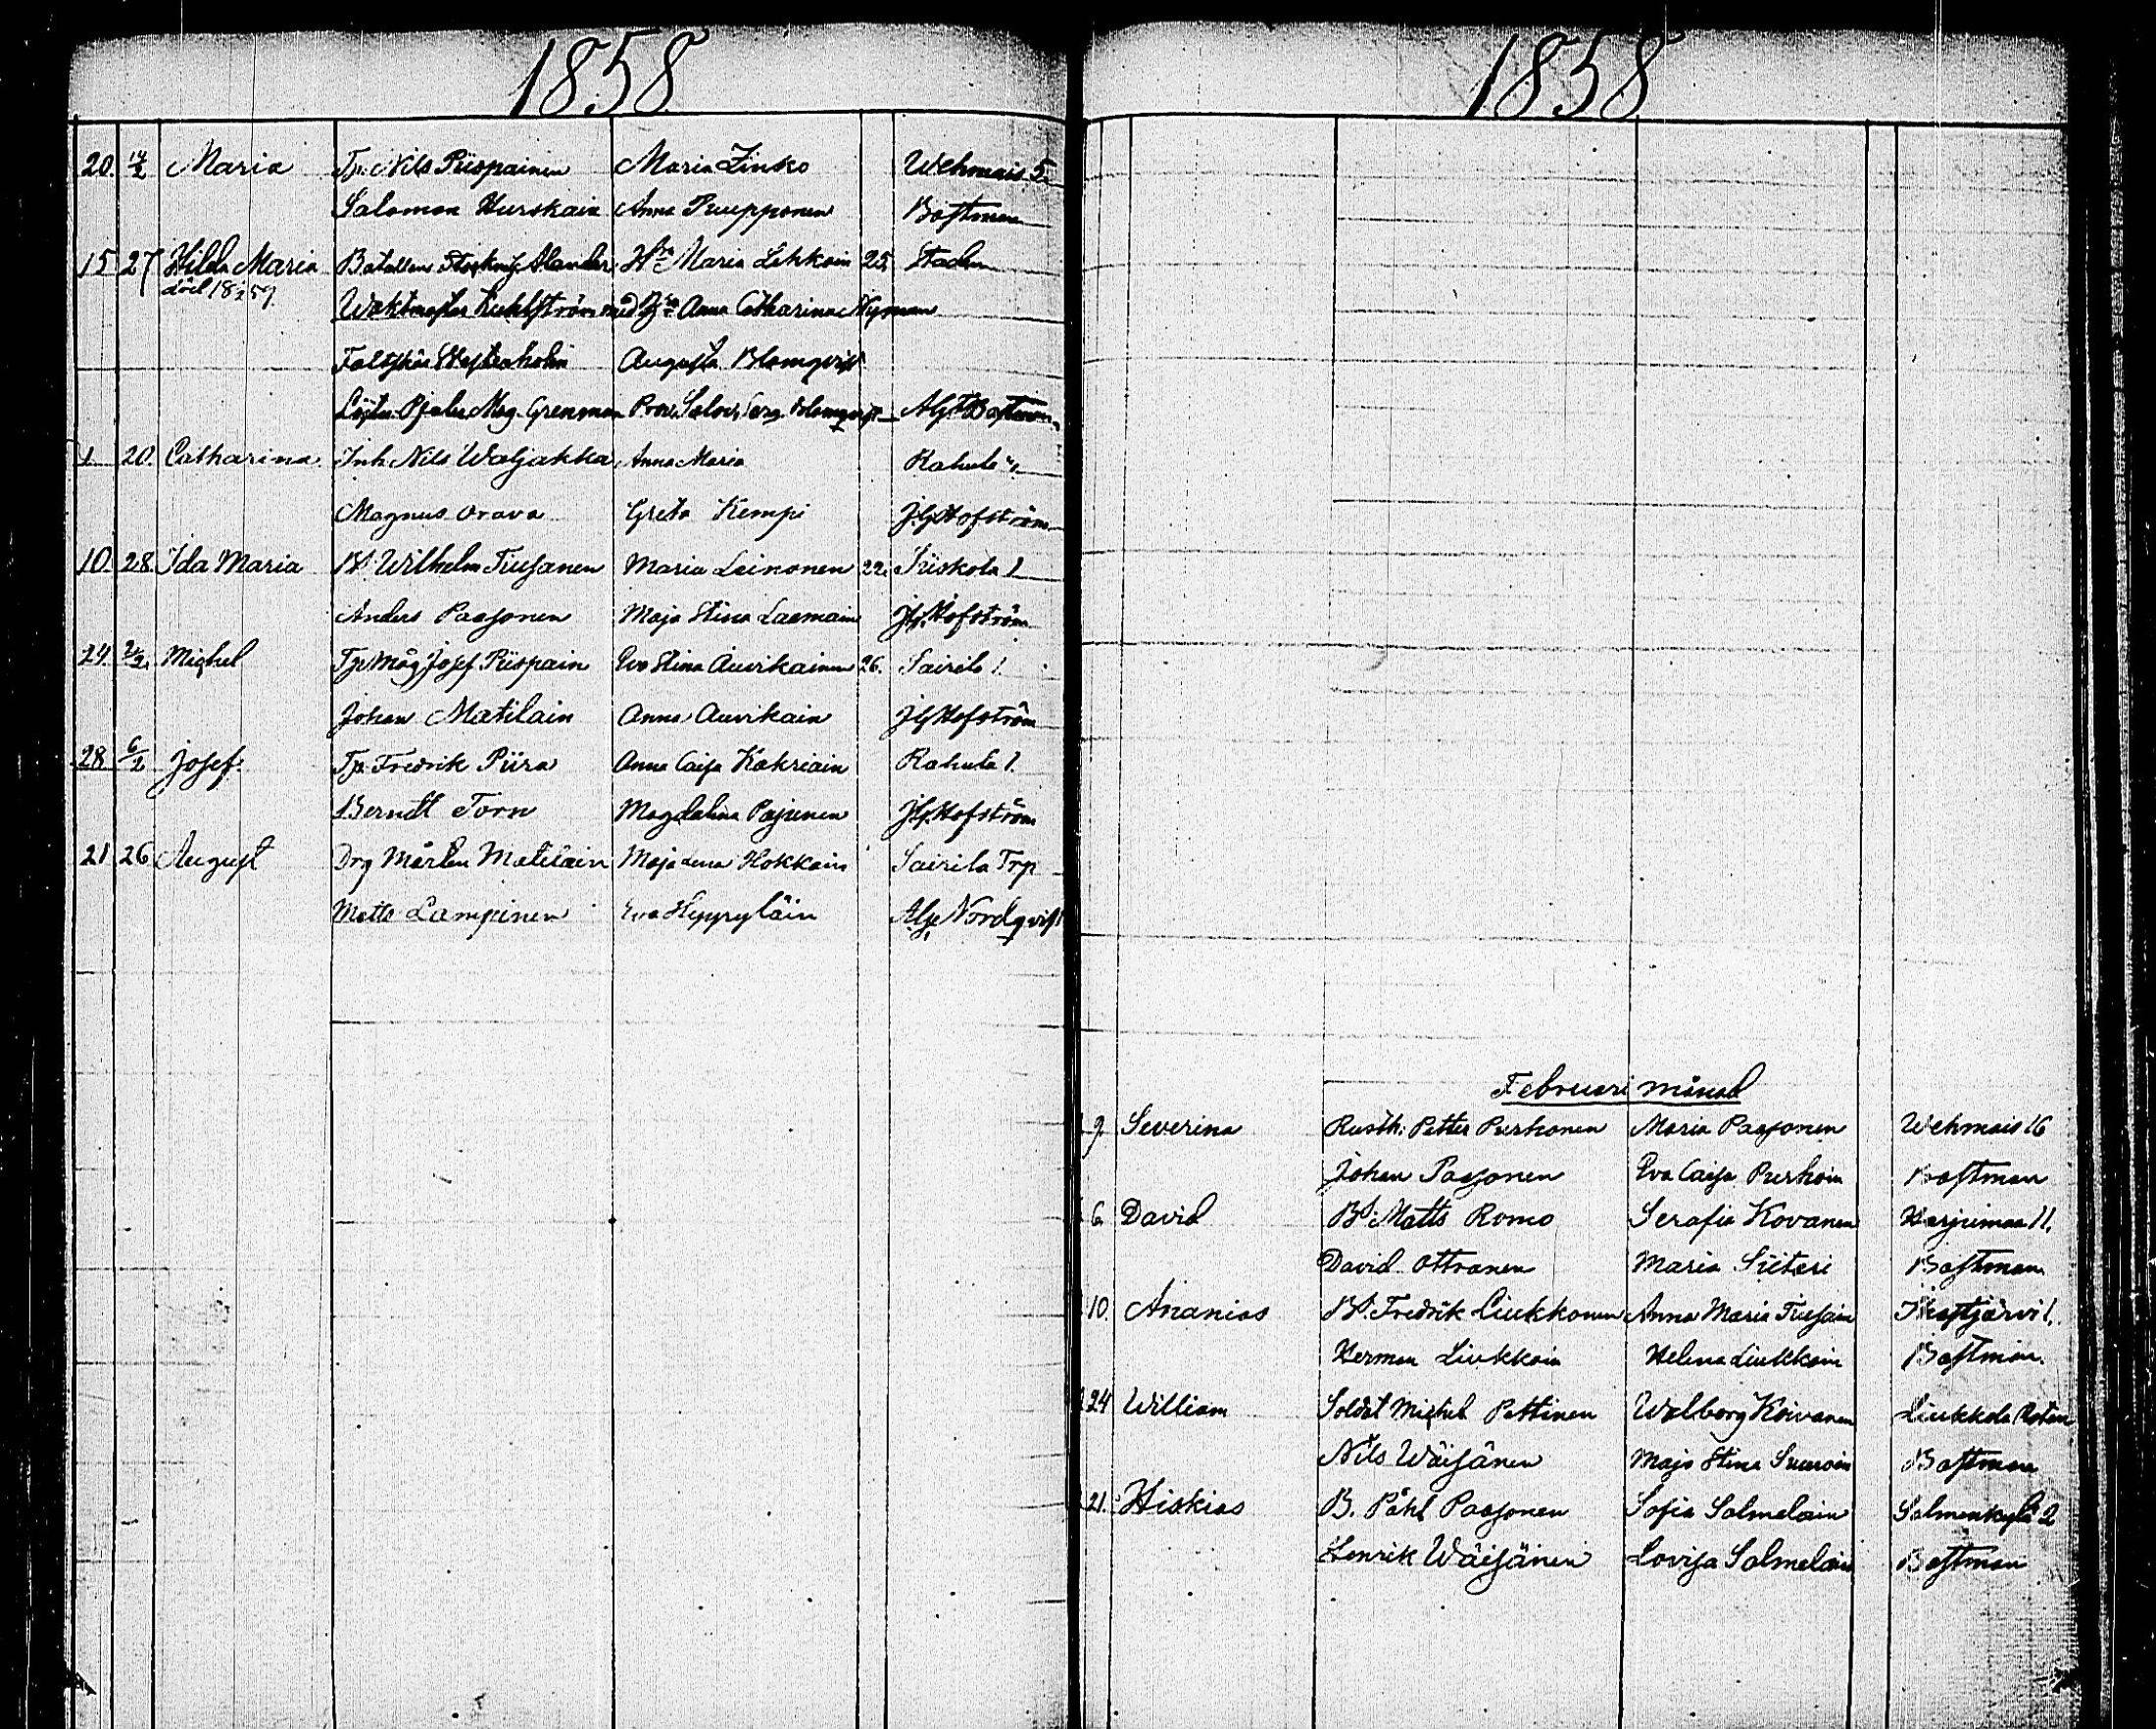 1858
20. 14/2 Maria Tp. Nils Piispainen Maria Zinko Wehmais 5.
Salomon Hurskain Anna Pruupponen Bostman
15 27 Hilda Maria Batallons Alander Hu Maria Lehkoin 25. Staden
död 18 59
Waktmästar med Anna Catharina Nyman
Fältskär Westerholm Augusta Blomqvist
Mag. Grenman Prov. Blomqvist Bostman
1 20. Catharina Inh. Nils Waljakka Anna Maria Rahula
Magnus Orava Greta Kempi J.G. Hofström
10. 28. Ida Maria Bd. Wilhelm Tiusanen Maria Leinonen 22. Siiskola 1
Anders Paasonen Maja Stina Laamain J.G. Hofström
24. Michel Tp Måg Josef Piispain Eva Stina Auvikainen 26. Sairila 1.
Johan Matilain Anna Auvikain J.G. Hofström
28. 6/2 Josef. Tp. Fredrik Piira Anna Caisa Kakriain Rahula 1.
Berndt Torn Magdalena Pajunen J.G. Hofström
21 26 August Drg Mårten Matilain Maja Lena Hokkain Sairila Trp
Matts Lampinen Eva Heppyläin Nordqvist
1858
Februari månad
9. Severina Rusth. Petter Purhonen Maria Paasonen Wehmais 16
Johan Paasonen Eva Caisa Purhoin Bostman
6. David Bd. Matts Romo Serafia Kovanen Harjumaa 11.
David Ottranen Maria Siitari Bostman
10. Ananias Bd. Fredrik Liukkonen Anna Maria Tiusain
Herman Liukkoin Helena Liukkoin Bostman.
24 William Soldat Michel Pettinen Walborg Koivanen Liukkola Roten
Nils Wäisänen Maja Stina Suuroin Bostman
21. Hiskias B. Påhl Paasonen Sofia Salmelain Salmenkylä 2
Henrik Wäisänen Lovisa Salmelain Bostman